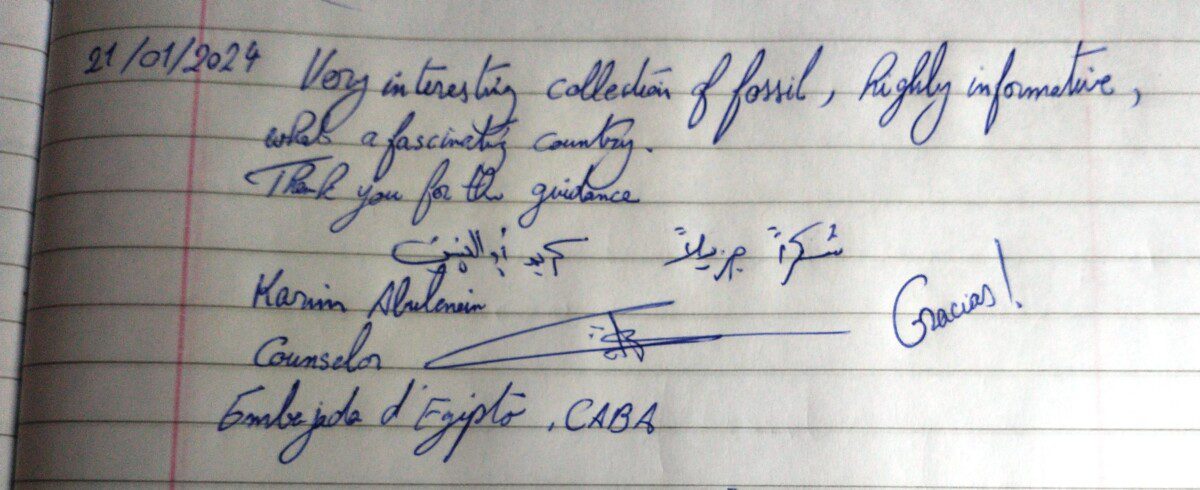 21/01/2024 Very interesting collection of fossil, highly informative,
what a fascinating country.
Thank you for the guidance
شكراً جزيلاً كريم أبو العنين
Karim Abulenein
Counselor
Gracias!
Embajada d'Egipto, CABA